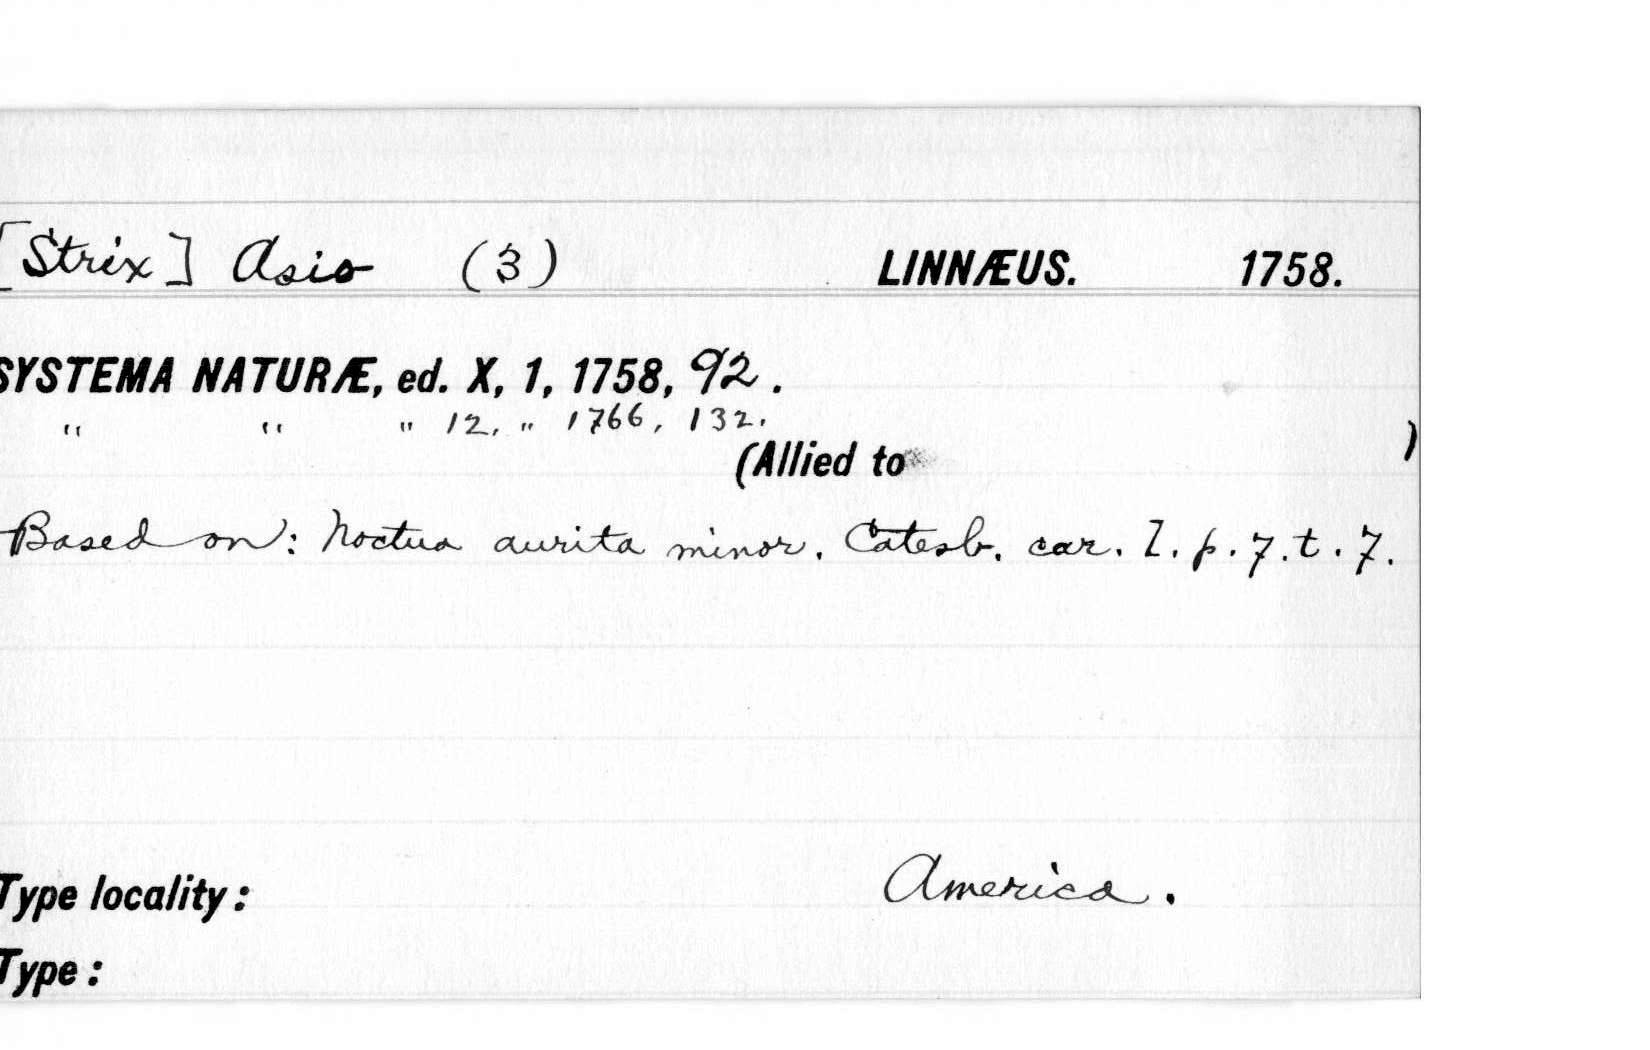 [Strix] Asio (3) LINNÆUS. 1758.
SYSTEMA NATURÆ, ed. X, 1, 1758, 92.
" " " 12, " 1766, 132.
(Allied to )
Based on: Noctua aurita minor. Catesb. car. I. p. 7. t. 7.
Type locality: America.
Type: